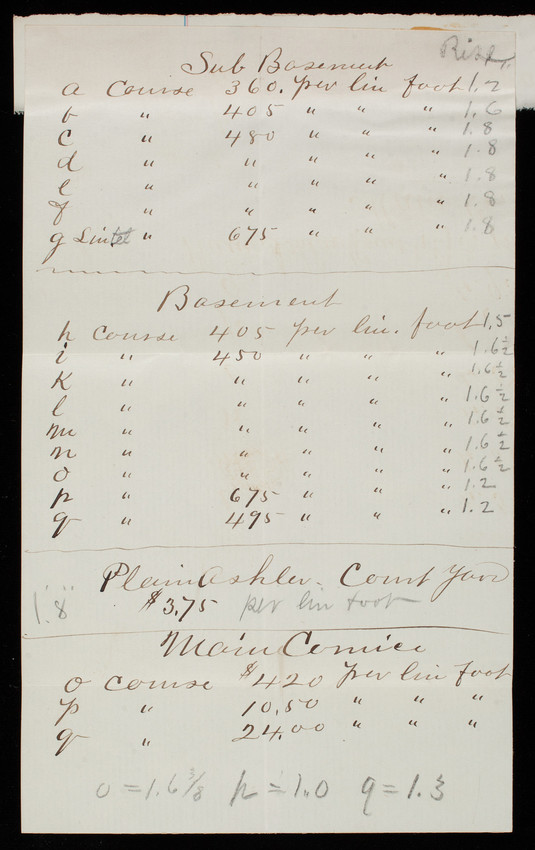 Rise
Sub Basement
a course 360. per lin foot 1.2
b " 405 " " " 1.6
c " 480 " " " 1.8
d " " " " " 1.8
e " " " " " 1.8
f " " " " " 1.8
g Lintel " 675 " " " 1.8
Basement
h course 405 per lin. foot 1.5
i " 450 " " " 1.6½
K " " " " " 1.6½
l " " " " " 1.6½
m " " " " " 1.6½
n " " " " " 1.6½
o " " " " " 1.6½
p " 675 " " " 1.2
q " 495 " " " 1.2
Plain Ashler. Court Yard
1.8 $3.75 per lin foot
Main Cornice
o course $4.20 per lin foot
p " 10.50 " " "
q " 24.00 " " "
o = 1.6 3/8 p = 1.0 q = 1.3